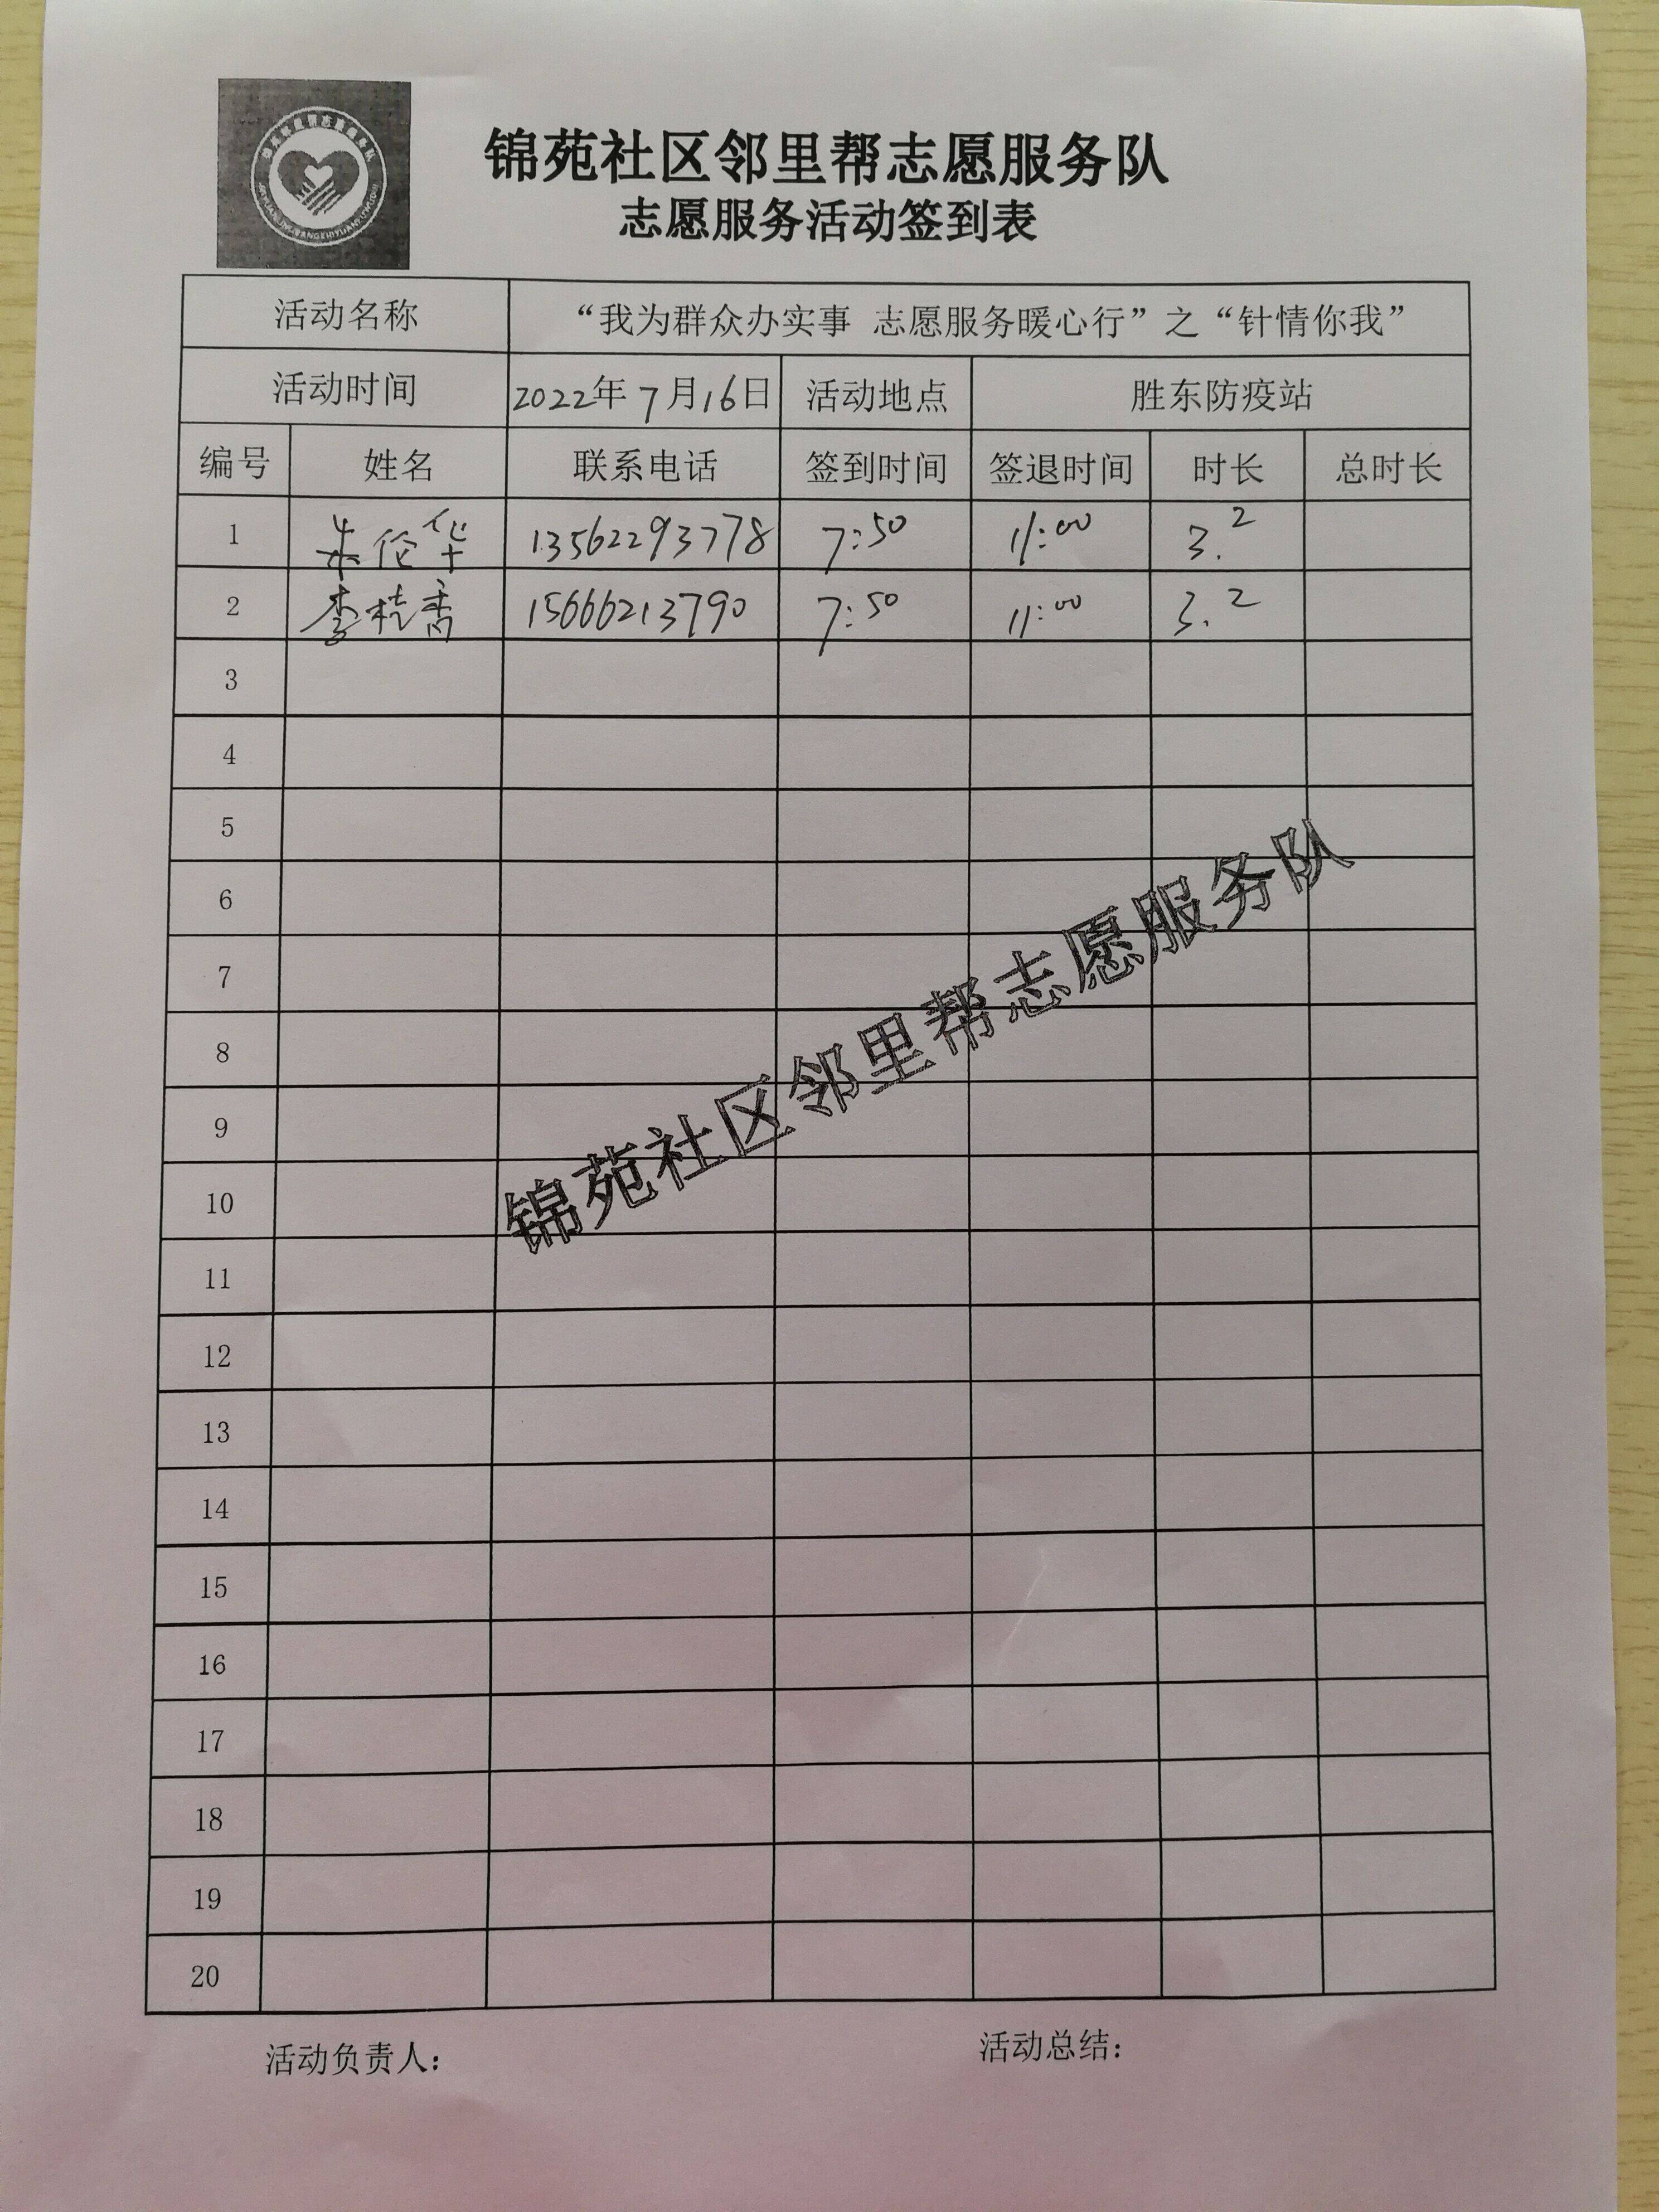 锦苑社区邻里帮志愿服务队
志愿服务活动签到表
活动名称 “我为群众办实事 志愿服务暖心行”之“针情你我”
活动时间 2022年7月16日 活动地点 胜东防疫站
编号 姓名 联系电话 签到时间 签退时间 时长 总时长
1 朱伦华 13562293778 7:50 11:00 3.2
2 李桂香 15666213790 7:50 11:00 3.2
3
4
5
6
7
8
9
10
11
12
13
14
15
16
17
18
19
20
锦苑社区邻里帮志愿服务队
活动负责人: 活动总结: